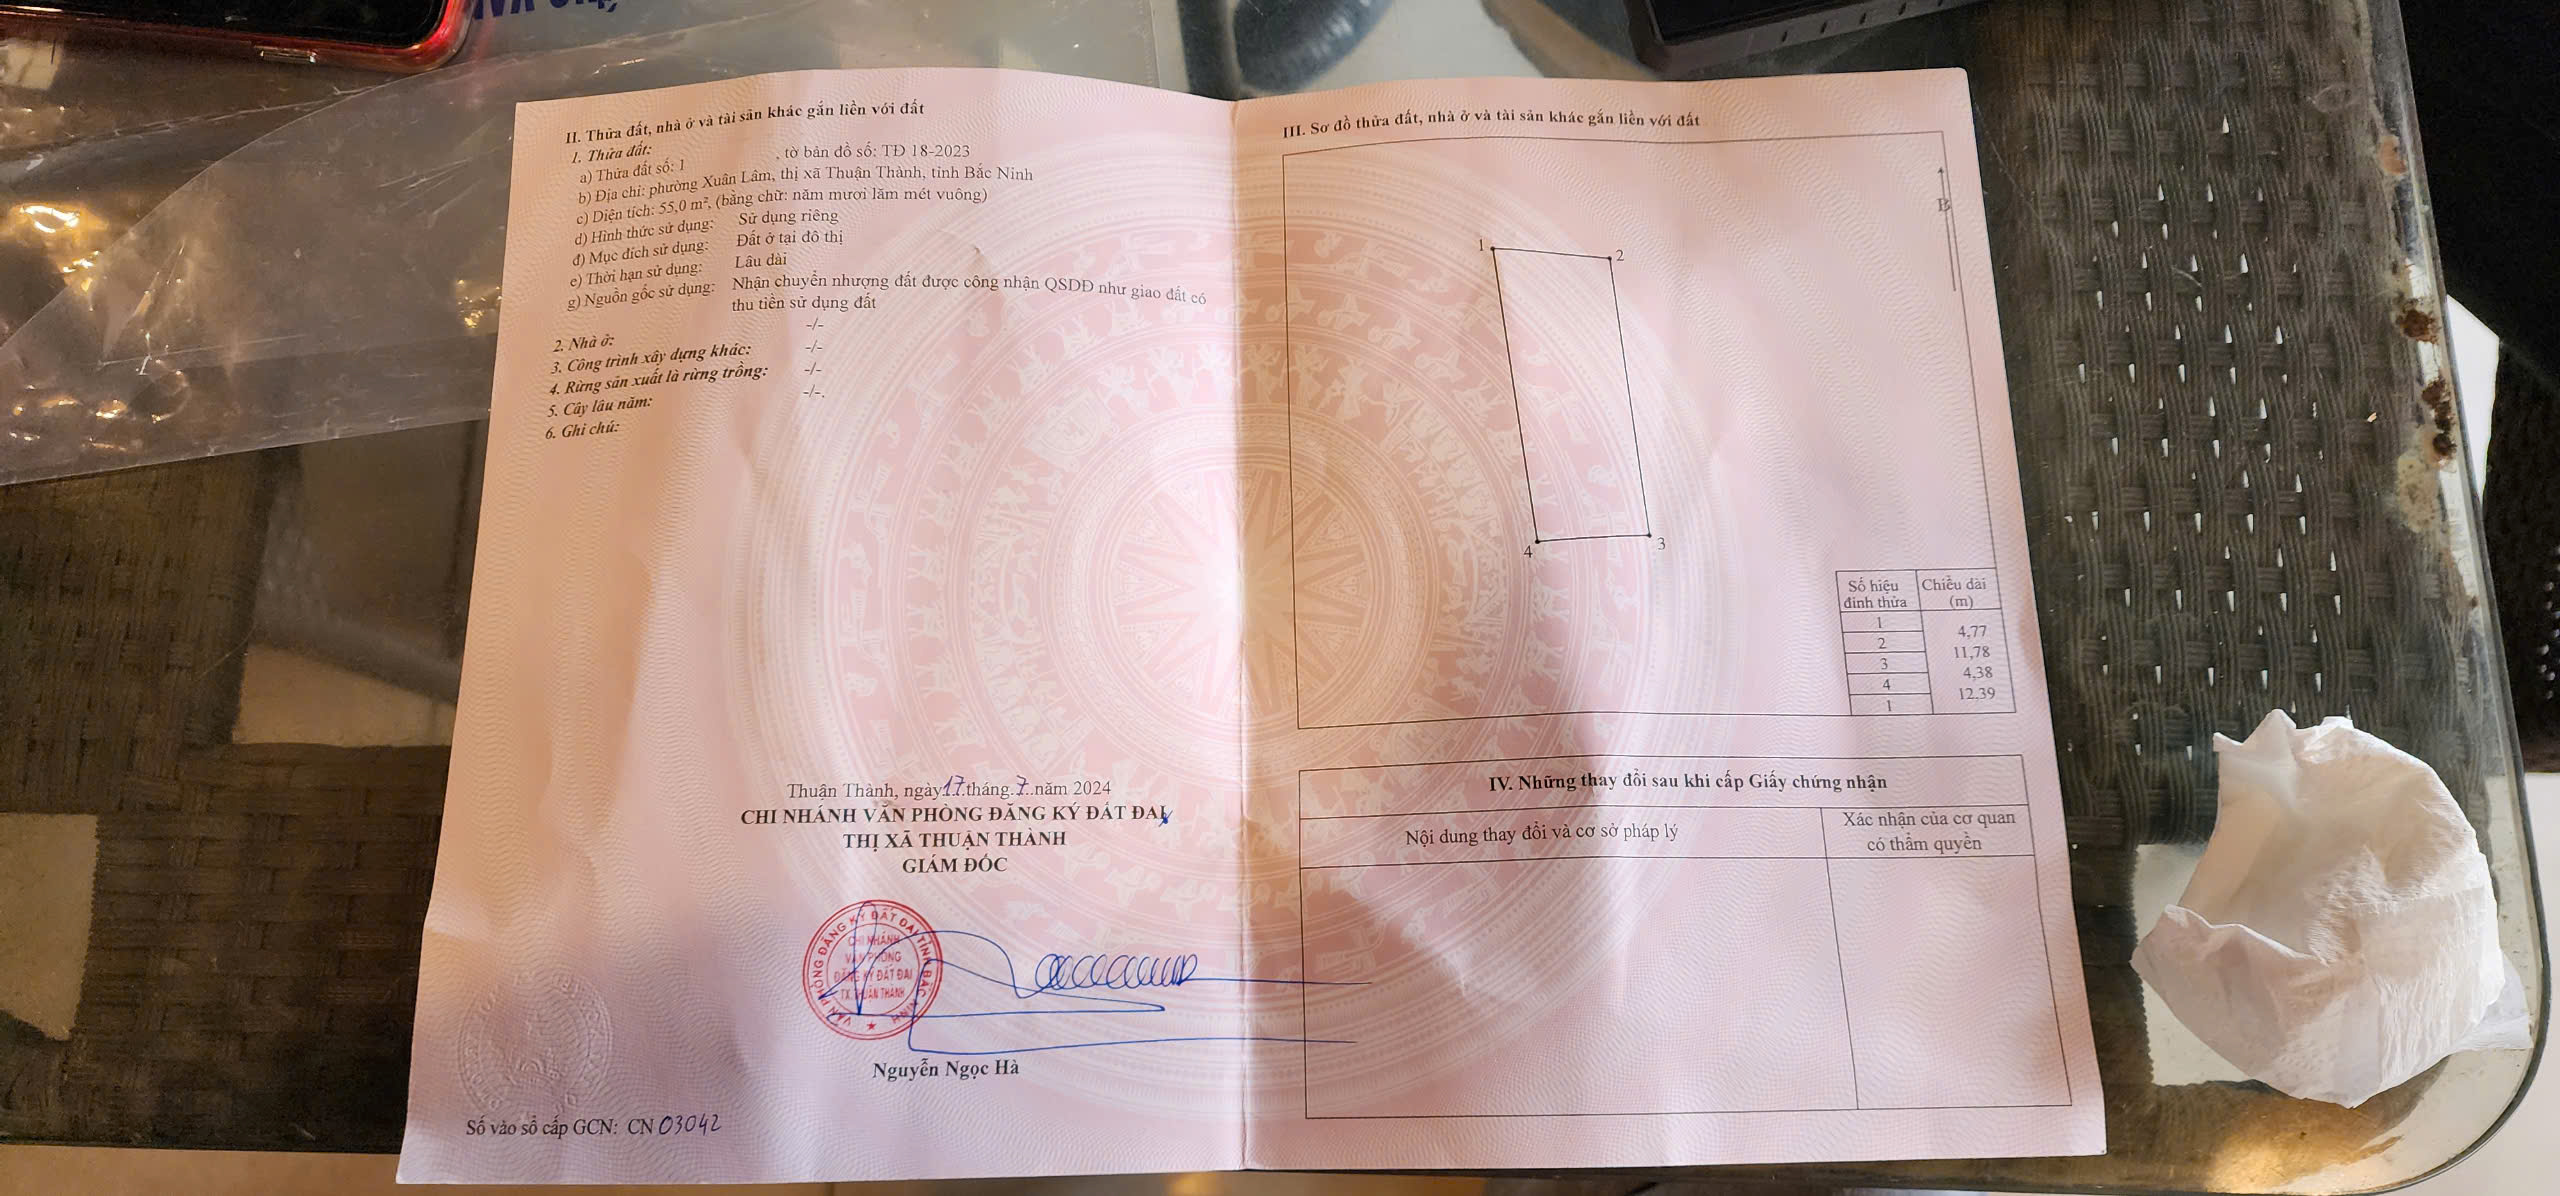 II. Thửa đất, nhà ở và tài sản khác gắn liền với đất
1. Thửa đất:
a) Thửa đất số: 1 , tờ bản đồ số: TĐ 18-2023
b) Địa chỉ: phường Xuân Lâm, thị xã Thuận Thành, tỉnh Bắc Ninh
c) Diện tích: 55,0 m², (bằng chữ: năm mươi lăm mét vuông)
d) Hình thức sử dụng: Sử dụng riêng
đ) Mục đích sử dụng: Đất ở tại đô thị
e) Thời hạn sử dụng: Lâu dài
g) Nguồn gốc sử dụng: Nhận chuyển nhượng đất được công nhận QSDĐ như giao đất có
thu tiền sử dụng đất
2. Nhà ở: -/-
3. Công trình xây dựng khác: -/-
4. Rừng sản xuất là rừng trồng: -/-
5. Cây lâu năm: -/-.
6. Ghi chú:
Thuận Thành, ngày 17 tháng 7 năm 2024
CHI NHÁNH VĂN PHÒNG ĐĂNG KÝ ĐẤT ĐAI
THỊ XÃ THUẬN THÀNH
GIÁM ĐỐC
VĂN PHÒNG ĐĂNG KÝ ĐẤT ĐAI TỈNH BẮC NINH
CHI NHÁNH
VĂN PHÒNG
ĐĂNG KÝ ĐẤT ĐAI
TX. THUẬN THÀNH
Nguyễn Ngọc Hà
Số vào sổ cấp GCN: CN 03042
III. Sơ đồ thửa đất, nhà ở và tài sản khác gắn liền với đất
B
1
2
3
4
Số hiệu đỉnh thửa Chiều dài (m)
1
4,77
2
11,78
3
4,38
4
12,39
1
IV. Những thay đổi sau khi cấp Giấy chứng nhận
Nội dung thay đổi và cơ sở pháp lý
Xác nhận của cơ quan
có thẩm quyền